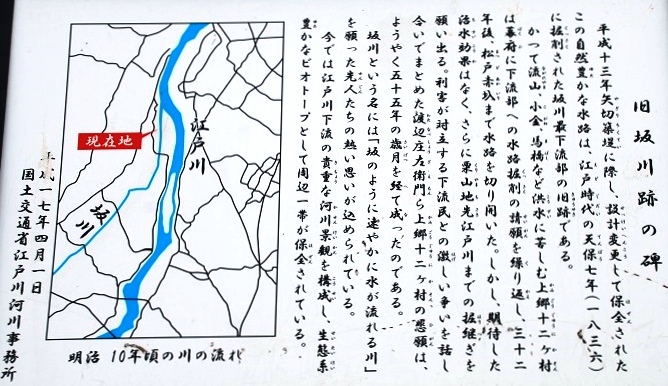 旧坂川跡の碑
平成十三年矢切築堤に際し、設計変更して保全された
この自然豊かな水路は、江戸時代の天保七年(一八三六)
に掘削された坂川最下流部の旧跡である。
かつて流山、小金、馬橋など洪水に苦しむ上郷十二ケ村
は幕府に下流部への水路掘削の請願を繰り返し、三十二
年後、松戸赤圦まで水路を切り開いた。しかし、期待した
治水効果はなく、さらに栗山地先江戸川までの掘継ぎを
願い出る。利害が対立する下流民との激しい争いを話し
合いでまとめた渡辺庄左衛門ら上郷十二ケ村の悲願は、
ようやく五十五年の歳月を経て成ったのである。
坂川という名には「坂のように速やかに水が流れる川」
を願った先人たちの熱い思いが込められている。
今では江戸川下流の貴重な河川景観を構成し、生態系
豊かなビオトープとして周辺一帯が保全されている。
江戸川
現在地
坂川
明治 10年頃の川の流れ
平成一七年四月一日
国土交通省江戸川河川事務所